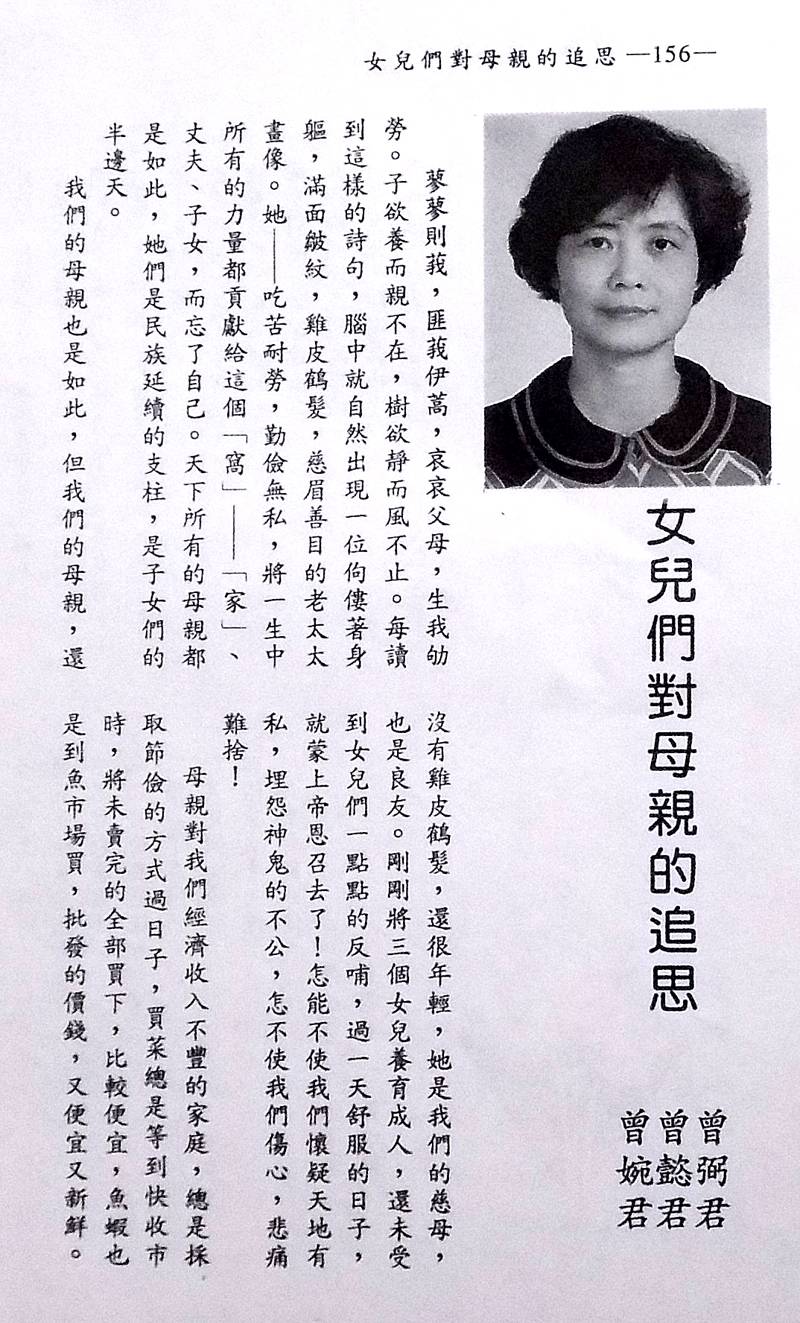 女兒們對母親的追思 —156—
女兒們對母親的追思
曾弼君
曾懿君
曾婉君
蓼蓼則莪，匪莪伊蒿，哀哀父母，生我劬
勞。子欲養而親不在，樹欲靜而風不止。每讀
到這樣的詩句，腦中就自然出現一位佝僂著身
軀，滿面皺紋，雞皮鶴髮，慈眉善目的老太太
畫像。她——吃苦耐勞，勤儉無私，將一生中
所有的力量都貢獻給這個「窩」——「家」、
丈夫、子女，而忘了自己。天下所有的母親都
是如此，她們是民族延續的支柱，是子女們的
半邊天。
我們的母親也是如此，但我們的母親，還
沒有雞皮鶴髮，還很年輕，她是我們的慈母，
也是良友。剛剛將三個女兒養育成人，還未受
到女兒們一點點的反哺，過一天舒服的日子，
就蒙上帝恩召去了！怎能不使我們懷疑天地有
私，埋怨神鬼的不公，怎不使我們傷心，悲痛
難捨！
母親對我們經濟收入不豐的家庭，總是採
取節儉的方式過日子，買菜總是等到快收市
時，將未賣完的全部買下，比較便宜，魚蝦也
是到魚市場買，批發的價錢，又便宜又新鮮。